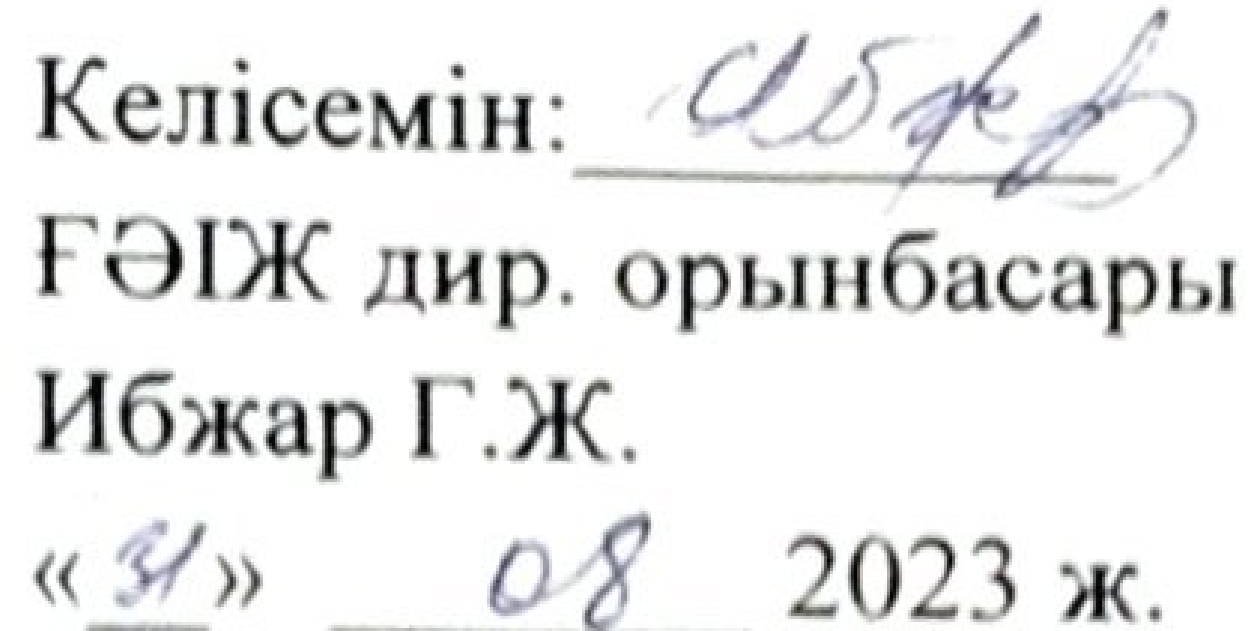 Келісемін:
ҒӘІЖ дир. орынбасары
Ибжар Г.Ж.
«31» 08 2023 ж.